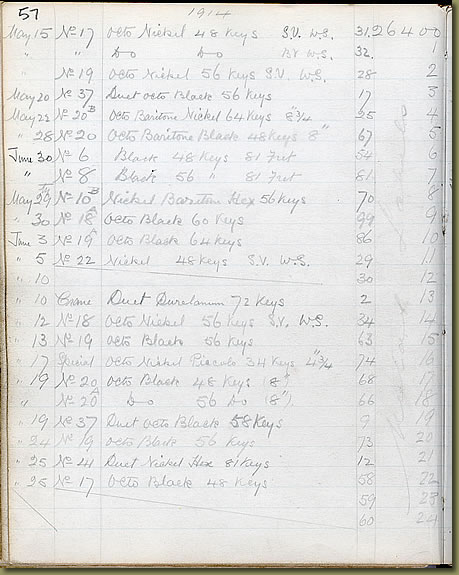 57 1914
May 15 No 17 Octo Nickel 48 Keys S.V. W.S. 31. 26400
" " Do Do BV W.S. 32. 1
" No 19 Octo Nickel 56 Keys S.V. W.S. 28 2
May 20 No 37 Duet Octo Black 56 Keys 17 3
May 22 No 20B Octo Baritone Nickel 64 Keys 8"3/4 25 4
" 28 No 20 Octo Baritone Black 48 Keys 8" 67 5
June 30 No 6 Black 48 Keys 81 54 6
" No 8 Black 56 " 81 81 7
May 29 No 10B Nickel Baritone Hex 56 Keys 70 8
" 30 No 18A Octo Black 60 Keys 99 9
June 3 No 19A Octo Black 64 Keys 86 10
" 5 No 22 Nickel 48 Keys S.V. W.S. 29 11
" 10 30 12
" 10 Crane Duet 72 Keys 2 13
" 12 No 18 Octo Nickel 56 Keys S.V. W.S. 34 14
" 13 No 19 Octo Black 56 Keys 63 15
" 17 Special Octo Nickel Piccolo 34 Keys 4"3/4 74 16
" 19 No 20 Octo Black 48 Keys (8") 68 17
" No 20A Do 56 Do (8") 66 18
" 19 No 37 Duet Octo Black 58 Keys 9 19
" 24 No 19 Octo Black 56 Keys 73 20
" 25 No 41 Duet Nickel Hex 81 Keys 12 21
" 25 No 17 Octo Black 48 Keys 58 22
59 23
60 24